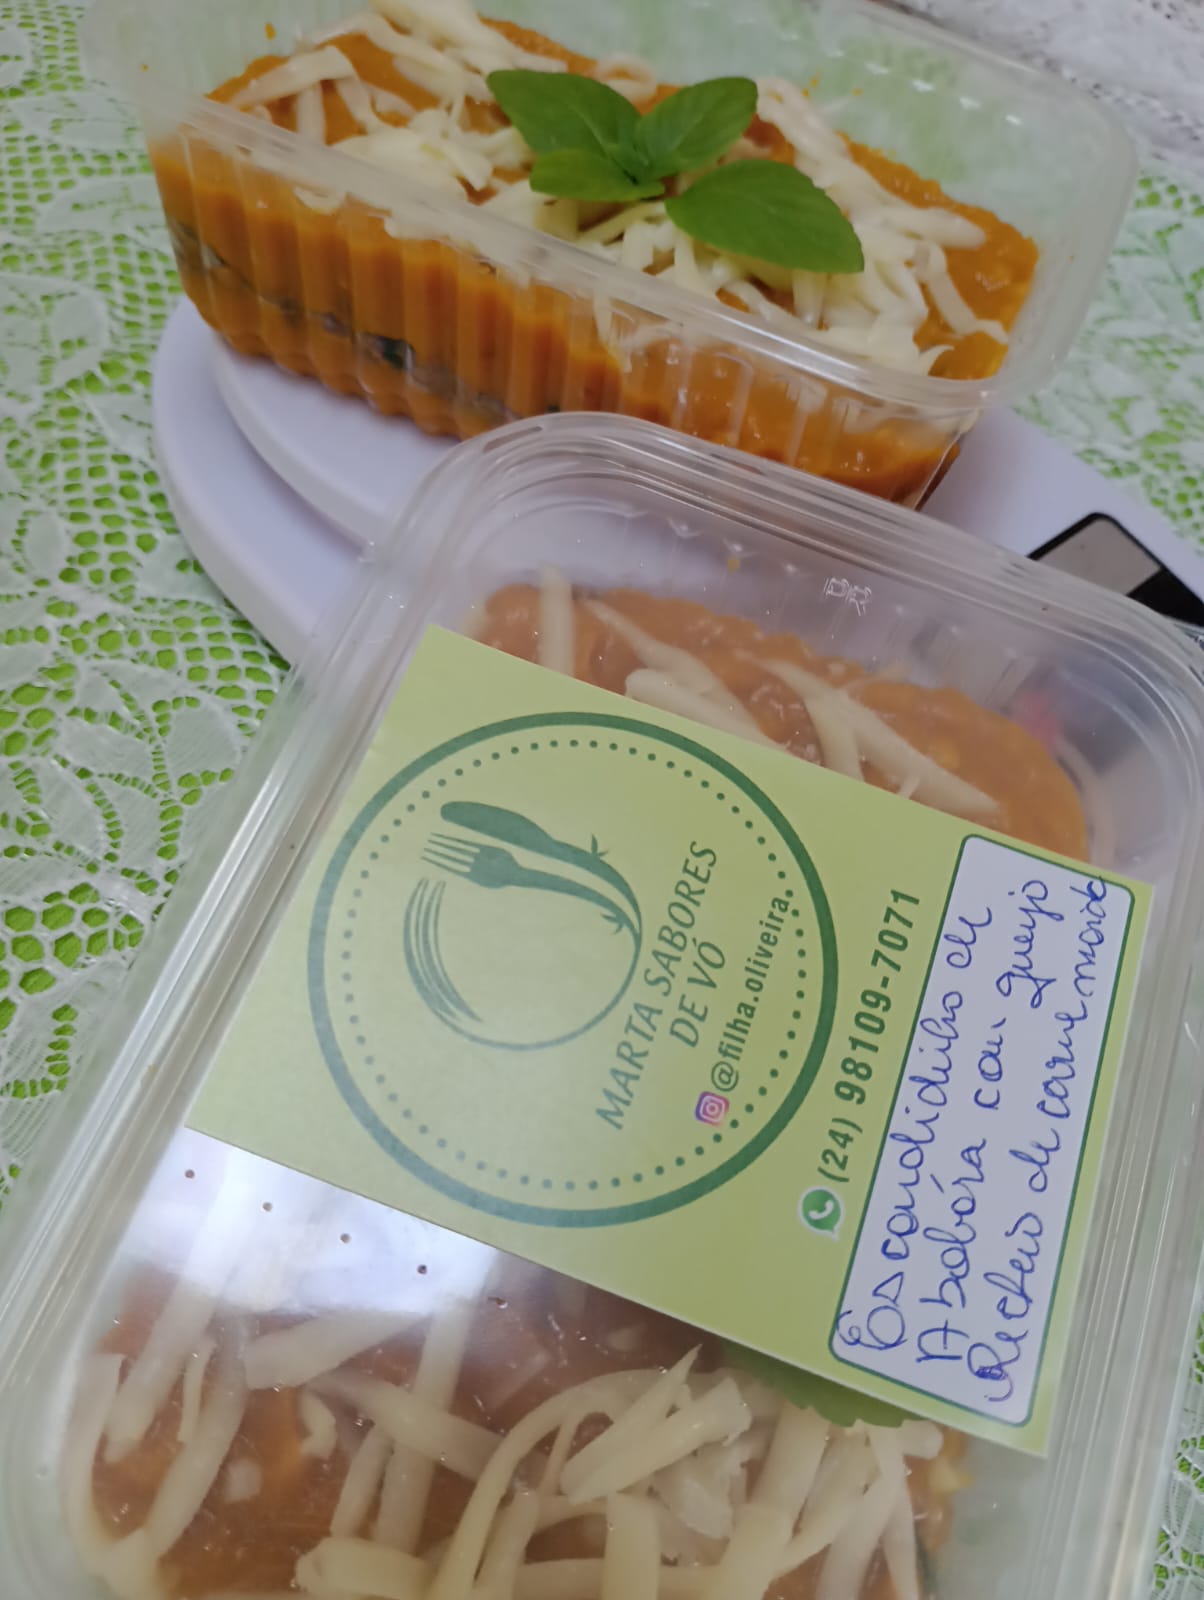 MARTA SABORES
DE VÓ
@filha.oliveira.
(24) 98109-7071
Escondidinho de
Abobóra com queijo
Recheio de carne moida